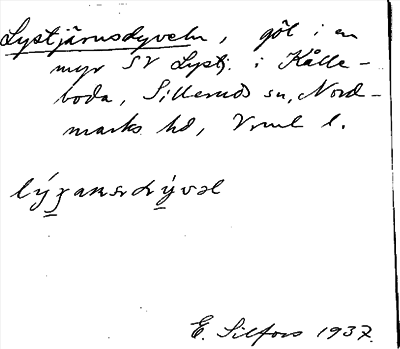 Lystjärnsdyveln, göl i en
myr SV Lystj. i Kålle-
boda, Silleruds sn, Nord-
marks hd, Vrml l.
E. Silfors 1937.